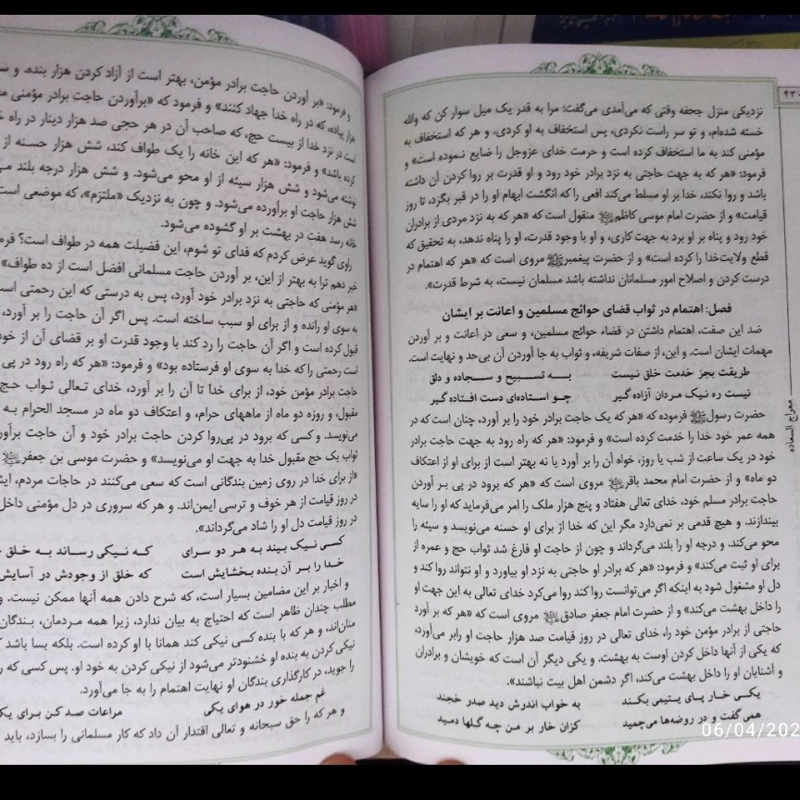 ۴۳۰
معراج السعاده
نزدیکی منزل جحفه وقتی که می‌آمدی می‌گفت: مرا به قدر یک میل سوار کن که والله
خسته شده‌ام، و تو سر راست نکردی، پس استخفاف به او کردی. و هر که استخفاف به
مؤمنی کند به ما استخفاف کرده است و حرمت خدای عزوجل را ضایع نموده است» و
فرمود: «هر که به جهت حاجتی به نزد برادر خود رود و او قدرت بر روا کردن آن داشته
باشد و روا نکند، خدا بر او مسلط می‌کند افعی را که انگشت ابهام او را در قبر بگزد، تا روز
قیامت» و از حضرت امام موسی کاظم منقول است که «هر که به نزد مردی از برادران
خود رود و پناه بر او برد به جهت کاری، و او با وجود قدرت، او را پناه ندهد، به تحقیق که
قطع ولایت‌خدا را کرده است» و از حضرت پیغمبر مروی است که «هر که اهتمام در
درست کردن و اصلاح امور مسلمانان نداشته باشد مسلمان نیست، به شرط قدرت».
فصل: اهتمام در ثواب قضای حوائج مسلمین و اعانت بر ایشان
ضد این صفت، اهتمام داشتن در قضاء حوائج مسلمین، و سعی در اعانت و بر آوردن
مهمات ایشان است. و این، از صفات شریفه، و ثواب به جا آوردن آن بی‌حد و نهایت است.
طریقت بجز خدمت خلق نیست به تسبیح و سجاده و دلق
نیست ره نیک مردان آزاده گیر چو استاده‌ای دست افتاده گیر
حضرت رسول فرموده که «هر که یک حاجت برادر خود را بر آورد، چنان است که در
همه عمر خود خدا را خدمت کرده است» و فرمود: «هر که راه رود به جهت حاجت برادر
خود در یک ساعت از شب یا روز، خواه آن را بر آورد یا نه بهتر است از برای او از اعتکاف
دو ماه» و از حضرت امام محمد باقر مروی است که «هر که برود در پی بر آوردن
حاجت برادر مسلم خود، خدای تعالی هفتاد و پنج هزار ملک را امر می‌فرماید که او را سایه
بیندازند. و هیچ قدمی بر نمی‌دارد مگر این که خدا از برای او حسنه می‌نویسد و سیئه را
محو می‌کند، و درجه او را بلند می‌گرداند و چون از حاجت او فارغ شد ثواب حج و عمره از
برای او ثبت می‌کند» و فرمود: «هر که برادر او حاجتی به نزد او بیاورد و او نتواند روا کند و
دل او مشغول شود به اینکه اگر می‌توانست روا کند روا می‌کرد خدای تعالی به این جهت او
را داخل بهشت می‌کند» و از حضرت امام جعفر صادق مروی است که «هر که بر آورد
حاجتی از برادر مؤمن خود را، خدای تعالی در روز قیامت صد هزار حاجت او رابر می‌آورد،
که یکی از آنها داخل کردن اوست به بهشت. و یکی دیگر آن است که خویشان و برادران
و آشنایان او را داخل بهشت می‌کند، اگر دشمن اهل بیت نباشند».
یکی خار پای یتیمی بکند به خواب اندرش دید صدر خجند
همی گفت و در روضه‌ها می‌چمید کزان خار بر من چه گلها دمید
و فرمود: «بر آوردن حاجت برادر مؤمن، بهتر است از آزاد کردن هزار بنده. و
هزار پیاده، که در راه خدا جهاد کنند» و فرمود که «برآوردن حاجت برادر مؤمنی
است در نزد خدا از بیست حج، که صاحب آن در هر حجی صد هزار دینار در راه
کرده باشد» و فرمود: «هر که این خانه را یک طواف کند، شش هزار حسنه از
نوشته می‌شود و شش هزار سیئه از او محو می‌شود. و شش هزار درجه بلند
شش هزار حاجت او برآورده می‌شود. و چون به نزدیک «ملتزم»، که موضعی است
خانه رسد هفت در بهشت بر او گشوده می‌شود.
راوی گوید عرض کردم که فدای تو شوم، این فضیلت همه در طواف است؟
خبر دهم ترا به بهتر از این، بر آوردن حاجت مسلمانی افضل است از ده طواف»
«هر مؤمنی که حاجتی به نزد برادر خود آورد، پس به درستی که این رحمتی
به سوی او رانده و از برای او سبب ساخته است. پس اگر آن حاجت را بر آورد،
قبول کرده است و اگر آن حاجت را رد کند با وجود قدرت او بر قضای آن از خود
است رحمتی را که خدا به سوی او فرستاده بود» و فرمود: «هر که راه رود در پی
حاجت برادر مؤمن خود، از برای خدا تا آن را بر آورد، خدای تعالی ثواب حج
مقبول، و روزه دو ماه از ماههای حرام، و اعتکاف دو ماه در مسجد الحرام به
می‌نویسد. و کسی که برود در پی‌روا کردن حاجت برادر خود و آن حاجت
ثواب یک حج مقبول خدا به جهت او می‌نویسد» و حضرت موسی بن جعفر
«از برای خدا در روی زمین بندگانی است که سعی می‌کنند در حاجات مردم،
در روز قیامت از هر خوف و ترسی ایمن‌اند. و هر که سروری در دل مؤمنی داخل
در روز قیامت دل او را شاد می‌گرداند».
کسی نیک بیند به هر دو سرای که نیکی رساند به خلق
خدا را بر آن بنده بخشایش است که خلق از وجودش در آسایش
و اخبار بر این مضامین بسیار است، که شرح دادن همه آنها ممکن نیست. و
مطلب چندان ظاهر است که احتیاج به بیان ندارد، زیرا همه مردمان، بندگان
منان‌اند، و هر که با بنده کسی نیکی کند همانا با او کرده است. بلکه بسا باشد
نیکی کردن به بنده او خشنودتر می‌شود از نیکی کردن به خود او. پس کسی که
را جوید، در کارگذاری بندگان او نهایت اهتمام را به جا می‌آورد.
غم جمله خور در هوای یکی مراعات صد کن برای
و هر که را حق سبحانه و تعالی اقتدار آن داد که کار مسلمانی را بسازد، باید
06/04/202